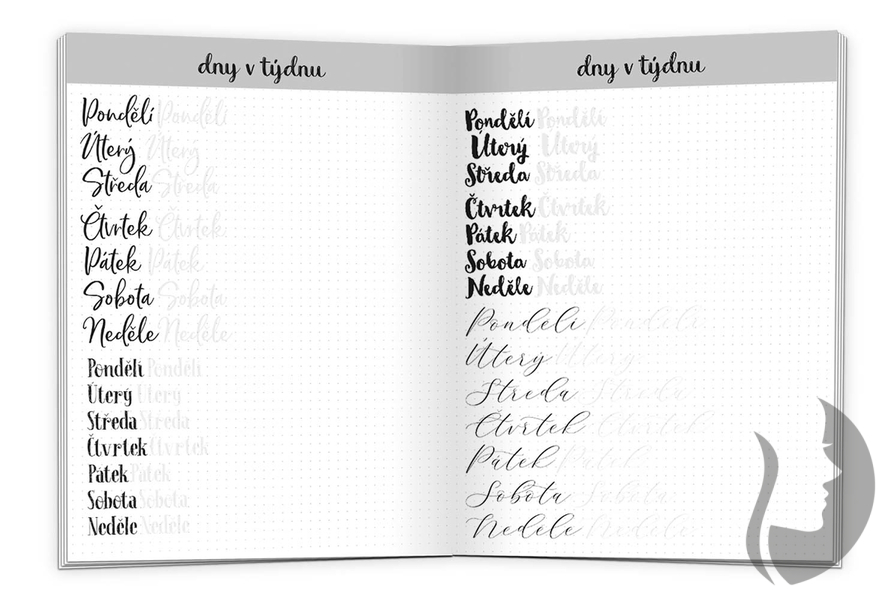 dny v týdnu
Pondělí Pondělí
Úterý Úterý
Středa Středa
Čtvrtek Čtvrtek
Pátek Pátek
Sobota Sobota
Neděle Neděle
Pondělí Pondělí
Úterý Úterý
Středa Středa
Čtvrtek Čtvrtek
Pátek Pátek
Sobota Sobota
Neděle Neděle
dny v týdnu
Pondělí Pondělí
Úterý Úterý
Středa Středa
Čtvrtek Čtvrtek
Pátek Pátek
Sobota Sobota
Neděle Neděle
Pondělí Pondělí
Úterý Úterý
Středa Středa
Čtvrtek Čtvrtek
Pátek Pátek
Sobota Sobota
Neděle Neděle